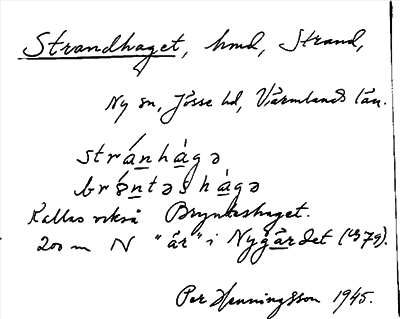 Strandhaget, hmd, Strand,
Ny sn, Jösse hd, Värmlands län.
stránhàgə
brø̀ntəshàgə
Kallas också Brynteshaget.
200 m N "år" i Nygårdet (1879).
Per Henningsson 1945.